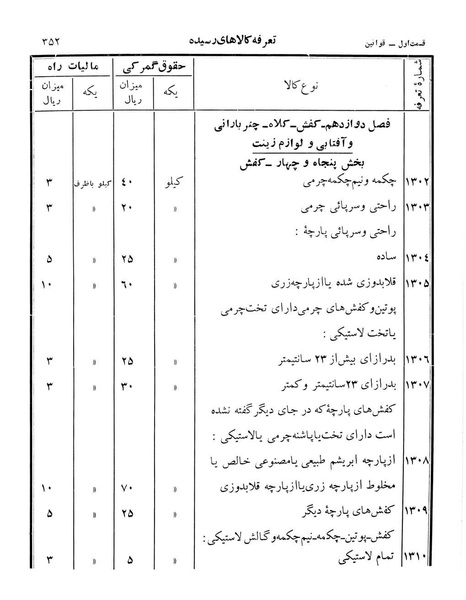 قسمت اول ــ قوانین تعرفه کالاهای رسیده ۳۵۲
شمارهٔ تعرفه نوع کالا حقوق گمرکی مالیات راه
یکه میزان ریال یکه میزان ریال
فصل دوازدهم ــ کفش ــ کلاه ــ چتر بارانی
و آفتابی و لوازم زینت
بخش پنجاه و چهار ــ کفش
۱۳۰۲ چکمه و نیم چکمه چرمی کیلو ۴۰ کیلو باظرف ۳
۱۳۰۳ راحتی و سرپائی چرمی » ۲۰ » ۳
راحتی و سرپائی پارچهٔ :
۱۳۰٤ ساده » ۲۵ » ۵
۱۳۰۵ قلابدوزی شده یا از پارچه زری » ۶۰ » ۱۰
پوتین و کفش‌های چرمی دارای تخت چرمی
یا تخت لاستیکی :
۱۳۰۶ بدرازای بیش از ۲۳ سانتیمتر » ۲۵ » ۳
۱۳۰۷ بدرازای ۲۳ سانتیمتر و کمتر » ۳۰ » ۳
کفش‌های پارچهٔ که در جای دیگر گفته نشده
است دارای تخت یا پاشنه چرمی یا لاستیکی :
۱۳۰۸ از پارچه ابریشم طبیعی یا مصنوعی خالص یا
مخلوط از پارچه زری یا از پارچه قلابدوزی » ۷۰ » ۱۰
۱۳۰۹ کفش‌های پارچهٔ دیگر » ۲۵ » ۵
کفش ــ پوتین ــ چکمه ــ نیم چکمه و گالش لاستیکی :
۱۳۱۰ تمام لاستیکی » ۵ » ۳